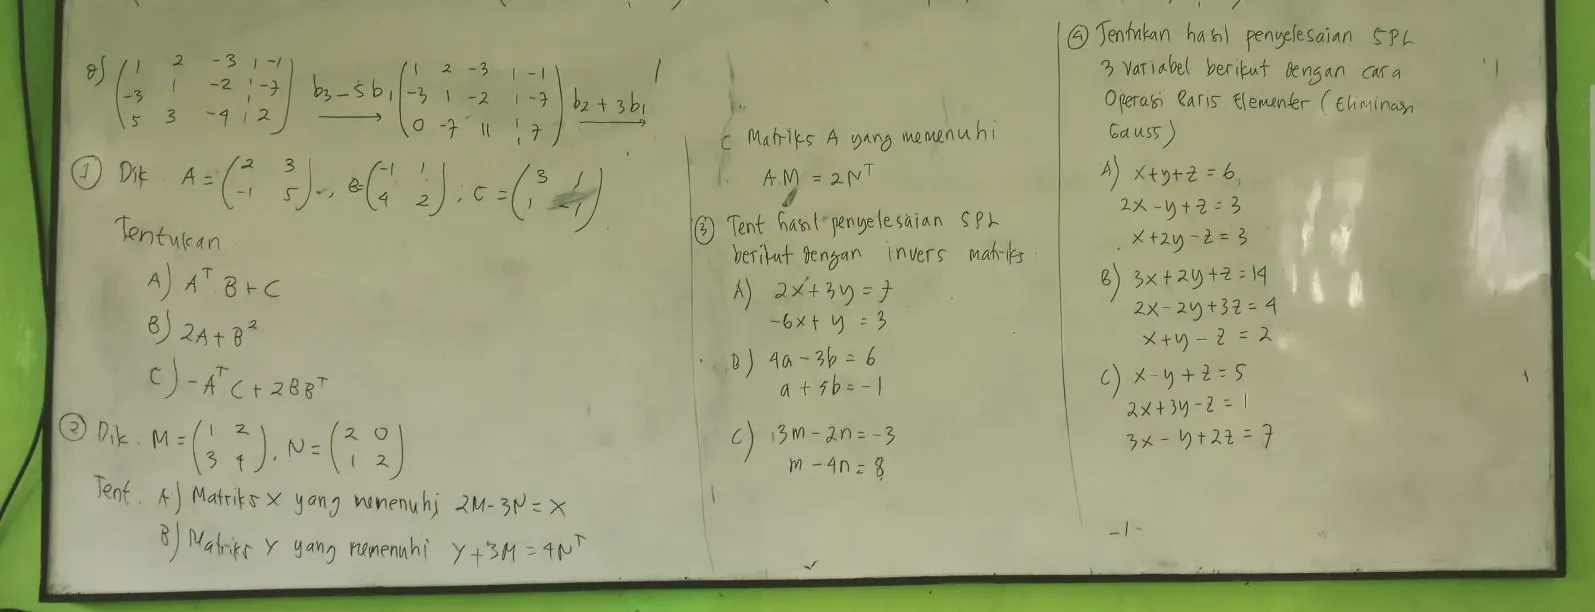 8) (1 2 -3 | -1) b3 - 5b1 (1 2 -3 | -1) b2 + 3b1
(-3 1 -2 | -7) → (-3 1 -2 | -7) →
(5 3 -4 | 2) (0 -7 11 | 7)
① Dik A = (2 3 / -1 5) ; B = (-1 1 / 4 2) ; C = (3 1 / 1 -1)
Tentukan
A) Aᵀ. B + C
B) 2A + B²
C) -AᵀC + 2BBᵀ
② Dik. M = (1 2 / 3 4), N = (2 0 / 1 2)
Tent. A) Matriks X yang memenuhi 2M - 3N = X
B) Matriks Y yang memenuhi Y + 3M = 4Nᵀ
C Matriks A yang memenuhi
A.M = 2Nᵀ
③ Tent hasil penyelesaian SPL
berikut dengan invers matriks
A) 2x + 3y = 7
-6x + y = 3
B) 4a - 3b = 6
a + 5b = -1
C) 3m - 2n = -3
m - 4n = 8
④ Tentukan hasil penyelesaian SPL
3 variabel berikut dengan cara
Operasi Baris Elementer (Eliminasi
Gauss)
A) x + y + z = 6
2x - y + z = 3
x + 2y - z = 3
B) 3x + 2y + z = 14
2x - 2y + 3z = 4
x + y - z = 2
C) x - y + z = 5
2x + 3y - z = 1
3x - y + 2z = 7
-1-